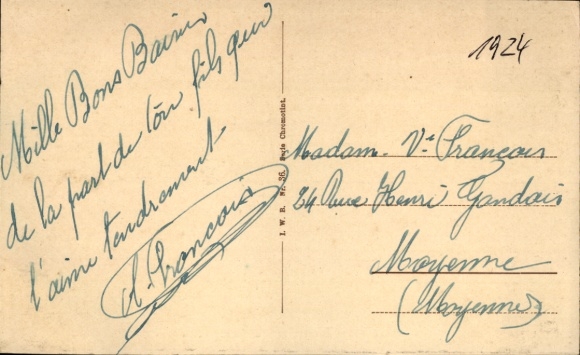 Mille Bons Baisers
de la part de ton fils qui
t'aime tendrement
A. François
I. W. B. Nr. 36. Serie Chromotint.
1924
Madame Vve François
24 Rue Henri Gandais
Mayenne
(Mayenne)